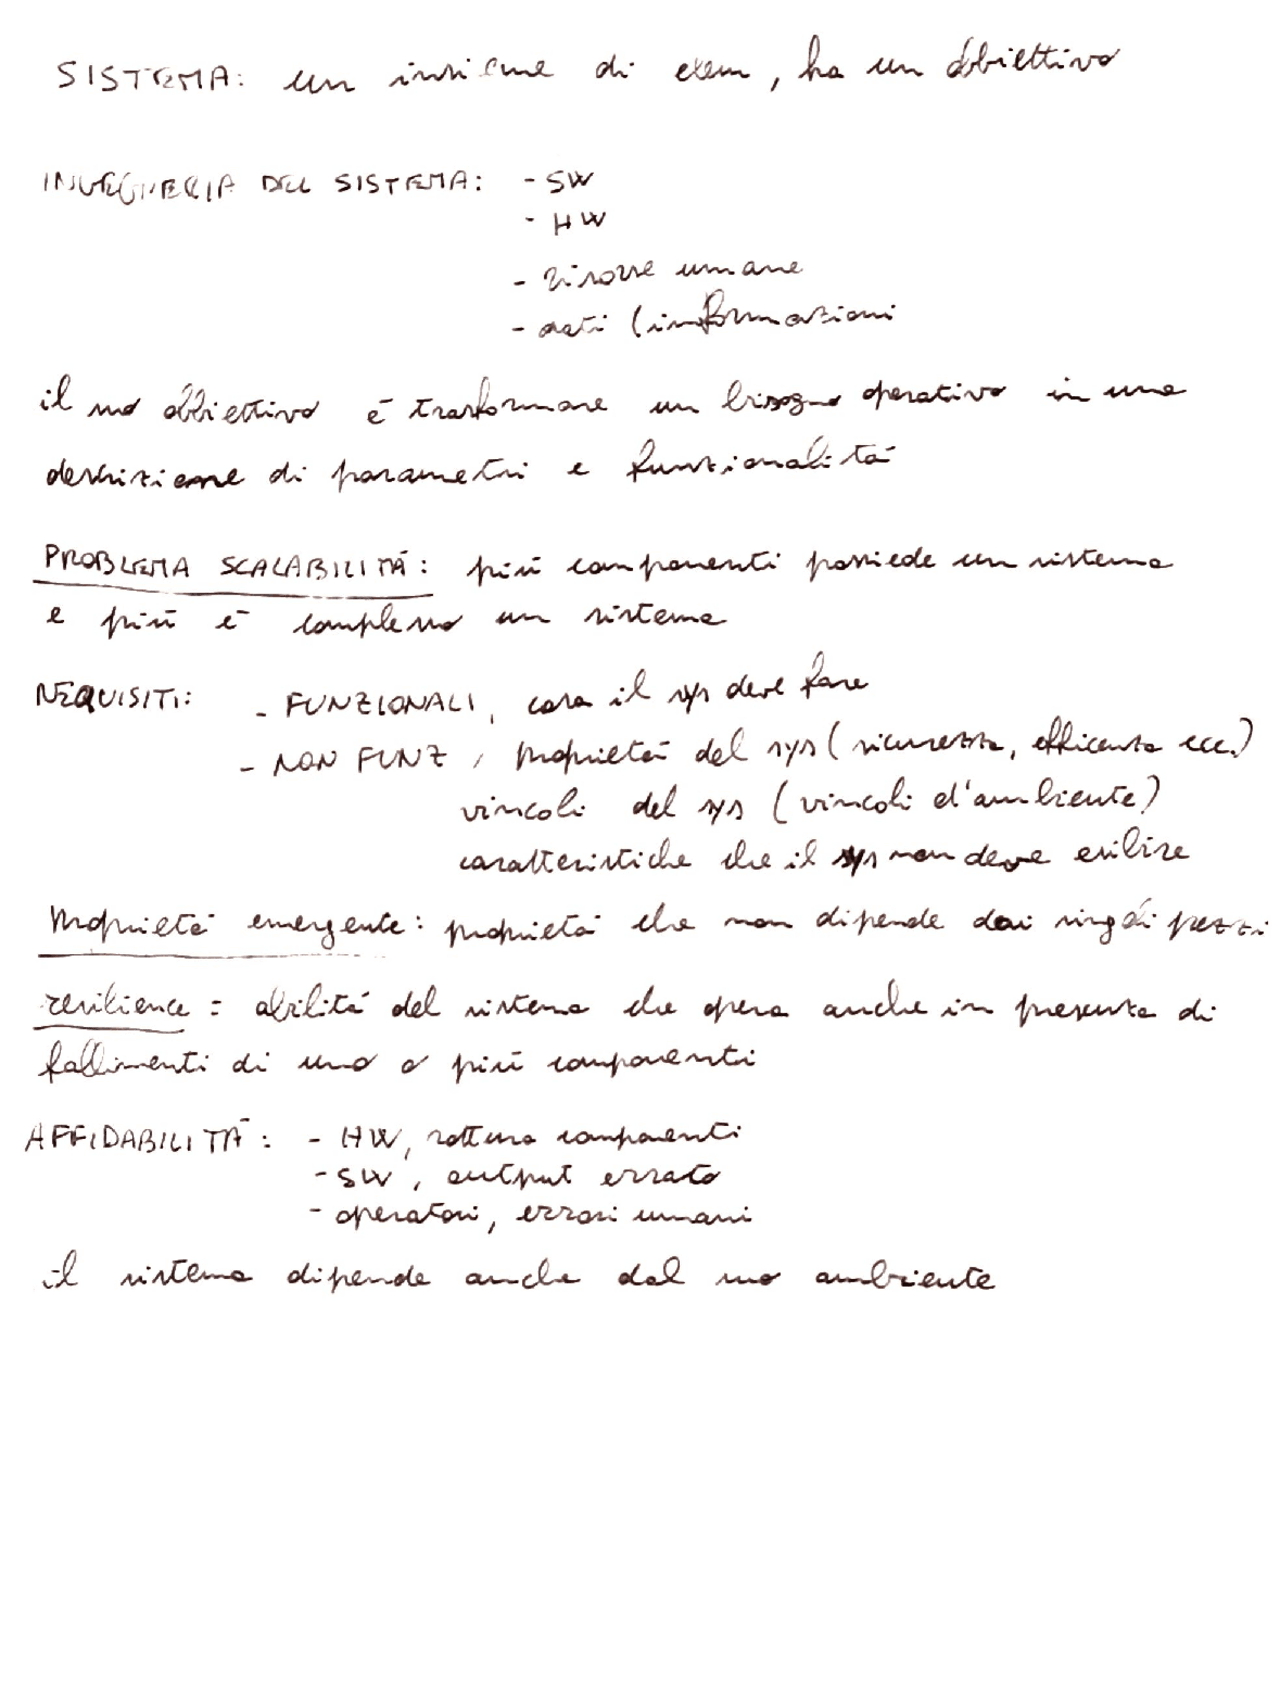 SISTEMA: un insieme di elem, ha un obbiettivo
INGEGNERIA DEL SISTEMA: - SW
- HW
- risorse umane
- dati (informazioni
il suo obbiettivo é trasformare un bisogno operativo in una
descrizione di parametri e funzionalitá
PROBLEMA SCALABILITÁ: piú componenti possiede un sistema
e piú é complesso un sistema
REQUISITI: - FUNZIONALI, cosa il sys deve fare
- NON FUNZ, proprietá del sys (sicurezza, efficenza ecc.)
vincoli del sys (vincoli d'ambiente)
caratteristiche che il sys non deve esibire
Proprietá emergente: proprietá che non dipende dai singoli pezzi
resilience = abilitá del sistema che opera anche in presenza di
fallimenti di uno o piú componenti
AFFIDABILITÁ: - HW, rottura componenti
- SW, output errato
- operatori, errori umani
il sistema dipende anche dal suo ambiente